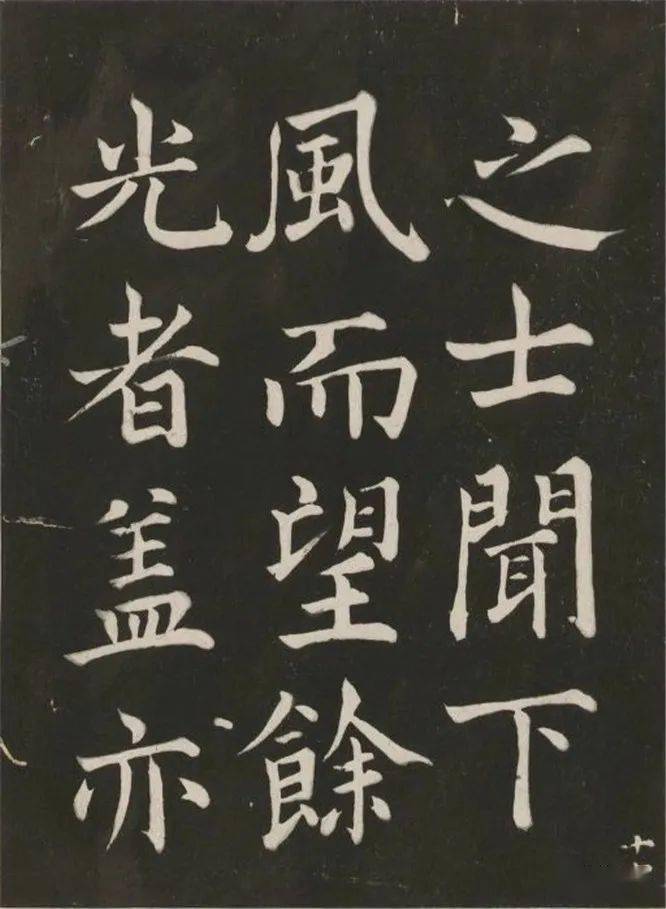 之士聞下
風而望餘
光者盖亦
十一